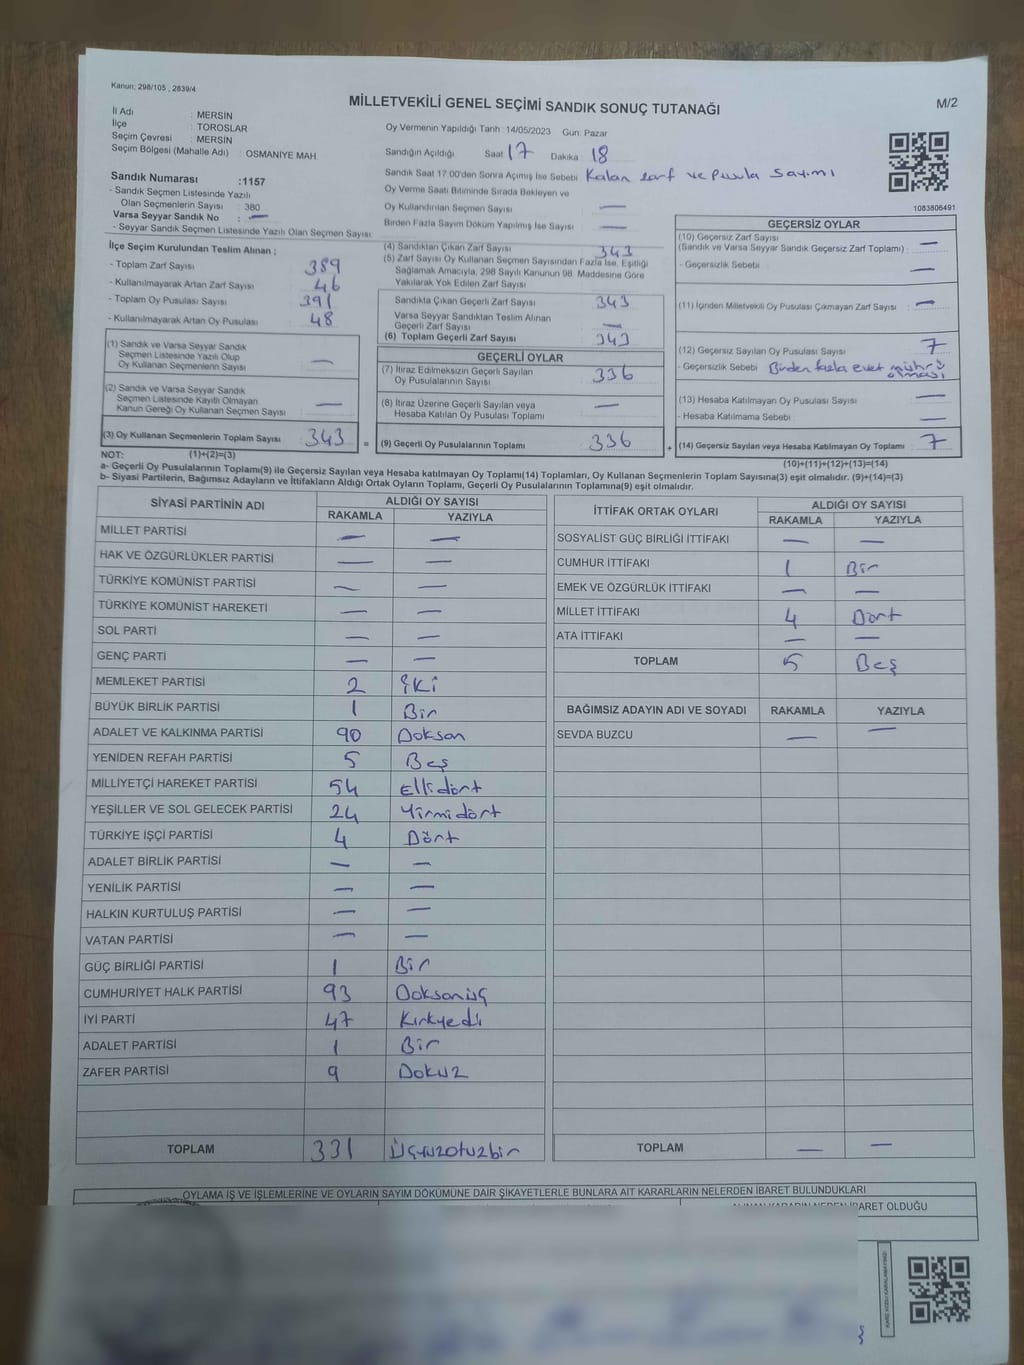 Kanun: 298/105 , 2839/4
MİLLETVEKİLİ GENEL SEÇİMİ SANDIK SONUÇ TUTANAĞI
M/2
İl Adı : MERSİN
İlçe : TOROSLAR
Seçim Çevresi : MERSİN
Seçim Bölgesi (Mahalle Adı) : OSMANİYE MAH.
Oy Vermenin Yapıldığı Tarih :14/05/2023 Gün: Pazar
Sandığın Açıldığı Saat 17 Dakika 18
Sandık Saat 17.00'den Sonra Açılmış İse Sebebi Kalan zarf ve pusula sayımı
Oy Verme Saati Bitiminde Sırada Bekleyen ve
Oy Kullandırılan Seçmen Sayısı —
Birden Fazla Sayım Döküm Yapılmış İse Sayısı —
1083806491
Sandık Numarası :1157
- Sandık Seçmen Listesinde Yazılı
Olan Seçmenlerin Sayısı : 380
Varsa Seyyar Sandık No : —
- Seyyar Sandık Seçmen Listesinde Yazılı Olan Seçmen Sayısı:
İlçe Seçim Kurulundan Teslim Alınan ;
- Toplam Zarf Sayısı 389
- Kullanılmayarak Artan Zarf Sayısı 46
- Toplam Oy Pusulası Sayısı 391
- Kullanılmayarak Artan Oy Pusulası 48
(1) Sandık ve Varsa Seyyar Sandık
Seçmen Listesinde Yazılı Olup
Oy Kullanan Seçmenlerin Sayısı —
(2) Sandık ve Varsa Seyyar Sandık
Seçmen Listesinde Kayıtlı Olmayan
Kanun Gereği Oy Kullanan Seçmen Sayısı —
(3) Oy Kullanan Seçmenlerin Toplam Sayısı 343 =
(4) Sandıktan Çıkan Zarf Sayısı 343
(5) Zarf Sayısı Oy Kullanan Seçmen Sayısından Fazla İse, Eşitliği
Sağlamak Amacıyla, 298 Sayılı Kanunun 98. Maddesine Göre
Yakılarak Yok Edilen Zarf Sayısı
Sandıkta Çıkan Geçerli Zarf Sayısı 343
Varsa Seyyar Sandıktan Teslim Alınan
Geçerli Zarf Sayısı —
(6) Toplam Geçerli Zarf Sayısı 343
GEÇERLİ OYLAR
(7) İtiraz Edilmeksizin Geçerli Sayılan
Oy Pusulalarının Sayısı 336
(8) İtiraz Üzerine Geçerli Sayılan veya
Hesaba Katılan Oy Pusulası Toplamı —
(9) Geçerli Oy Pusulalarının Toplamı 336 +
GEÇERSİZ OYLAR
(10) Geçersiz Zarf Sayısı
(Sandık ve Varsa Seyyar Sandık Geçersiz Zarf Toplamı) : —
- Geçersizlik Sebebi : —
(11) İçinden Milletvekili Oy Pusulası Çıkmayan Zarf Sayısı : —
(12) Geçersiz Sayılan Oy Pusulası Sayısı 7
- Geçersizlik Sebebi Birden fazla evet mührü
olması
(13) Hesaba Katılmayan Oy Pusulası Sayısı —
- Hesaba Katılmama Sebebi : —
(14) Geçersiz Sayılan veya Hesaba Katılmayan Oy Toplamı : 7
NOT: (1)+(2)=(3)
(10)+(11)+(12)+(13)=(14)
a- Geçerli Oy Pusulalarının Toplamı(9) ile Geçersiz Sayılan veya Hesaba katılmayan Oy Toplamı(14) Toplamları, Oy Kullanan Seçmenlerin Toplam Sayısına(3) eşit olmalıdır. (9)+(14)=(3)
b- Siyasi Partilerin, Bağımsız Adayların ve İttifakların Aldığı Ortak Oyların Toplamı, Geçerli Oy Pusulalarının Toplamına(9) eşit olmalıdır.
SİYASİ PARTİNİN ADI ALDIĞI OY SAYISI
RAKAMLA YAZIYLA
MİLLET PARTİSİ — —
HAK VE ÖZGÜRLÜKLER PARTİSİ — —
TÜRKİYE KOMÜNİST PARTİSİ — —
TÜRKİYE KOMÜNİST HAREKETİ — —
SOL PARTİ — —
GENÇ PARTİ — —
MEMLEKET PARTİSİ 2 İki
BÜYÜK BİRLİK PARTİSİ 1 Bir
ADALET VE KALKINMA PARTİSİ 90 Doksan
YENİDEN REFAH PARTİSİ 5 Beş
MİLLİYETÇİ HAREKET PARTİSİ 54 Ellidört
YEŞİLLER VE SOL GELECEK PARTİSİ 24 Yirmidört
TÜRKİYE İŞÇİ PARTİSİ 4 Dört
ADALET BİRLİK PARTİSİ — —
YENİLİK PARTİSİ — —
HALKIN KURTULUŞ PARTİSİ — —
VATAN PARTİSİ — —
GÜÇ BİRLİĞİ PARTİSİ 1 Bir
CUMHURİYET HALK PARTİSİ 93 Doksanüç
İYİ PARTİ 47 Kırkyedi
ADALET PARTİSİ 1 Bir
ZAFER PARTİSİ 9 Dokuz
TOPLAM 331 Üçyüzotuzbir
İTTİFAK ORTAK OYLARI ALDIĞI OY SAYISI
RAKAMLA YAZIYLA
SOSYALİST GÜÇ BİRLİĞİ İTTİFAKI — —
CUMHUR İTTİFAKI 1 Bir
EMEK VE ÖZGÜRLÜK İTTİFAKI — —
MİLLET İTTİFAKI 4 Dört
ATA İTTİFAKI — —
TOPLAM 5 Beş
BAĞIMSIZ ADAYIN ADI VE SOYADI RAKAMLA YAZIYLA
SEVDA BUZCU — —
TOPLAM — —
OYLAMA İŞ VE İŞLEMLERİNE VE OYLARIN SAYIM DÖKÜMÜNE DAİR ŞİKAYETLERLE BUNLARA AİT KARARLARIN NELERDEN İBARET BULUNDUKLARI
ALINAN KARARIN NEDEN İBARET OLDUĞU